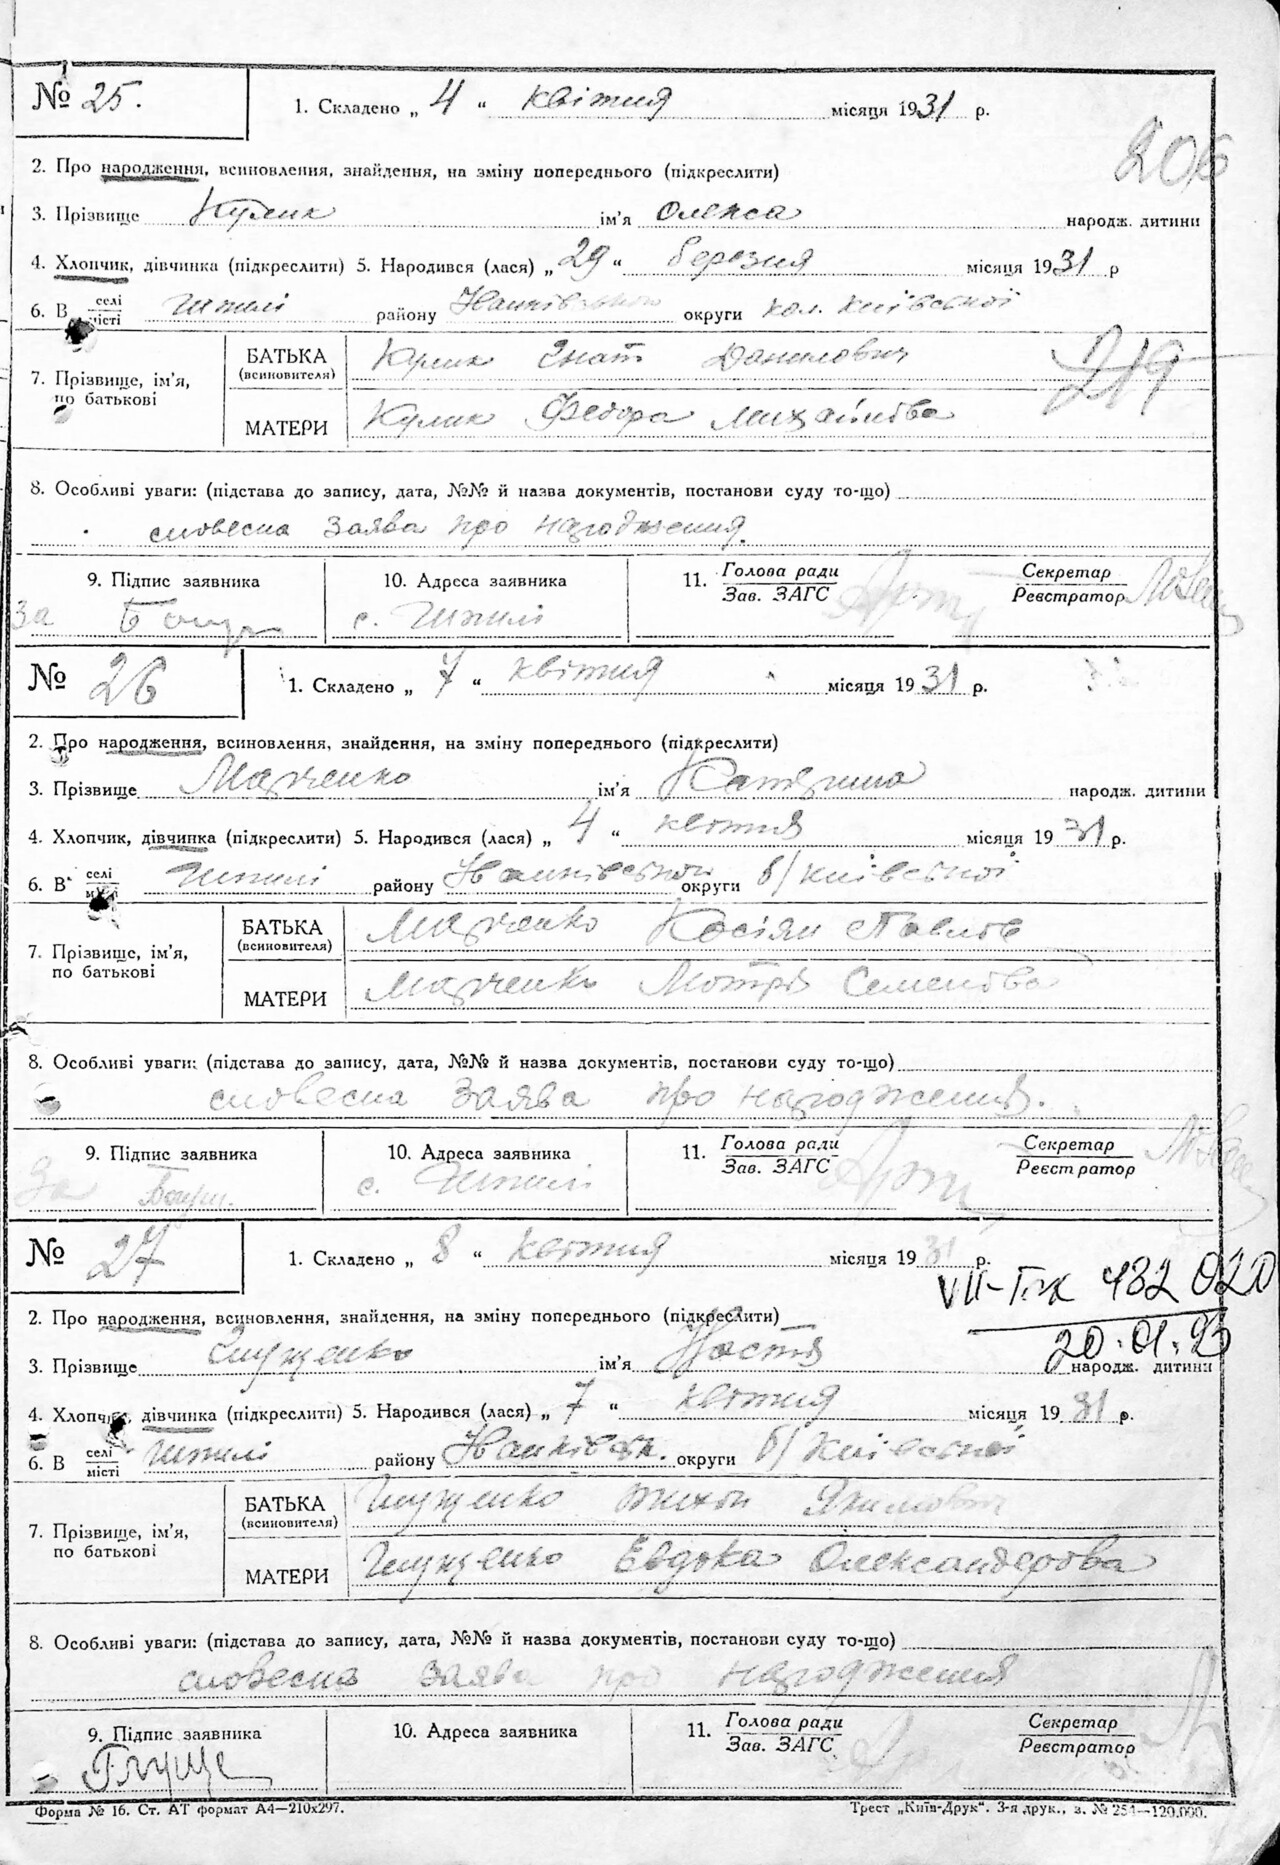 № 25. 1. Складено „ 4 “ квітня місяця 1931 р.
206
2. Про народження, всиновлення, знайдення, на зміну попереднього (підкреслити)
3. Прізвище Кулик ім'я Олекса народж. дитини
4. Хлопчик, дівчинка (підкреслити) 5. Народився (лася) „ 29 “ березня місяця 1931 р
6. В селі місті Шпилі району Іванківського округи кол. Київської
219
7. Прізвище, ім'я, по батькові БАТЬКА (всиновителя) Кулик Гнат Данилович
МАТЕРИ Кулик Федора Михайлівна
8. Особливі уваги: (підстава до запису, дата, №№ й назва документів, постанови суду то-що)
словесна заява про народження.
9. Підпис заявника 10. Адреса заявника 11. Голова ради Зав. ЗАГС Секретар Реєстратор
За с. Шпилі
№ 26 1. Складено „ 7 “ квітня місяця 1931 р.
2. Про народження, всиновлення, знайдення, на зміну попереднього (підкреслити)
3. Прізвище Марченко ім'я Катерина народж. дитини
4. Хлопчик, дівчинка (підкреслити) 5. Народився (лася) „ 4 “ квітня місяця 1931 р.
6. В селі Шпилі району Іванківської округи б/Київської
7. Прізвище, ім'я, по батькові БАТЬКА (всиновителя) Марченко Касіян Павлов
МАТЕРИ Марченко Мотря Семенівна
8. Особливі уваги: (підстава до запису, дата, №№ й назва документів, постанови суду то-що)
словесна заява про народження.
9. Підпис заявника 10. Адреса заявника 11. Голова ради Зав. ЗАГС Секретар Реєстратор
За с. Шпилі
№ 27 1. Складено „ 8 “ квітня місяця 1931 р.
VII-ТМК 482 020
2. Про народження, всиновлення, знайдення, на зміну попереднього (підкреслити)
20.01.93
3. Прізвище Глущенко ім'я Настя народж. дитини
4. Хлопчик, дівчинка (підкреслити) 5. Народився (лася) „ 7 “ квітня місяця 1931 р.
6. В селі місті Шпилі району Іванківськ. округи б/Київської
7. Прізвище, ім'я, по батькові БАТЬКА (всиновителя) Глущенко Тихон Якимович
МАТЕРИ Глущенко Евдока Олександрова
8. Особливі уваги: (підстава до запису, дата, №№ й назва документів, постанови суду то-що)
словесна заява про народження
9. Підпис заявника 10. Адреса заявника 11. Голова ради Зав. ЗАГС Секретар Реєстратор
Глуще
Форма № 16. Ст. АТ формат А4—210х297. Трест „Київ-Друк“. 3-я друк., з. № 254—120.000.